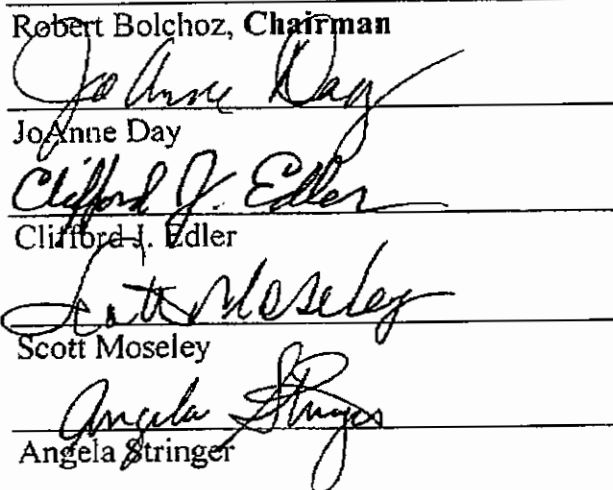 Robert Bolchoz, Chairman
Jo Anne Day
JoAnne Day
Clifford J. Edler
Clifford J. Edler
Scott Moseley
Scott Moseley
Angela Stringer
Angela Stringer